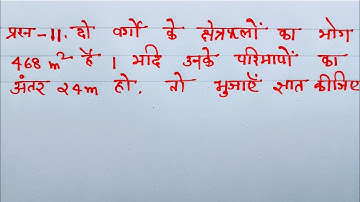 प्रश्न-11. दो वर्गों के क्षेत्रफलों का योग
468 m² है । यदि उनके परिमापों का
अंतर 24m हो, तो भुजाएँ ज्ञात कीजिए